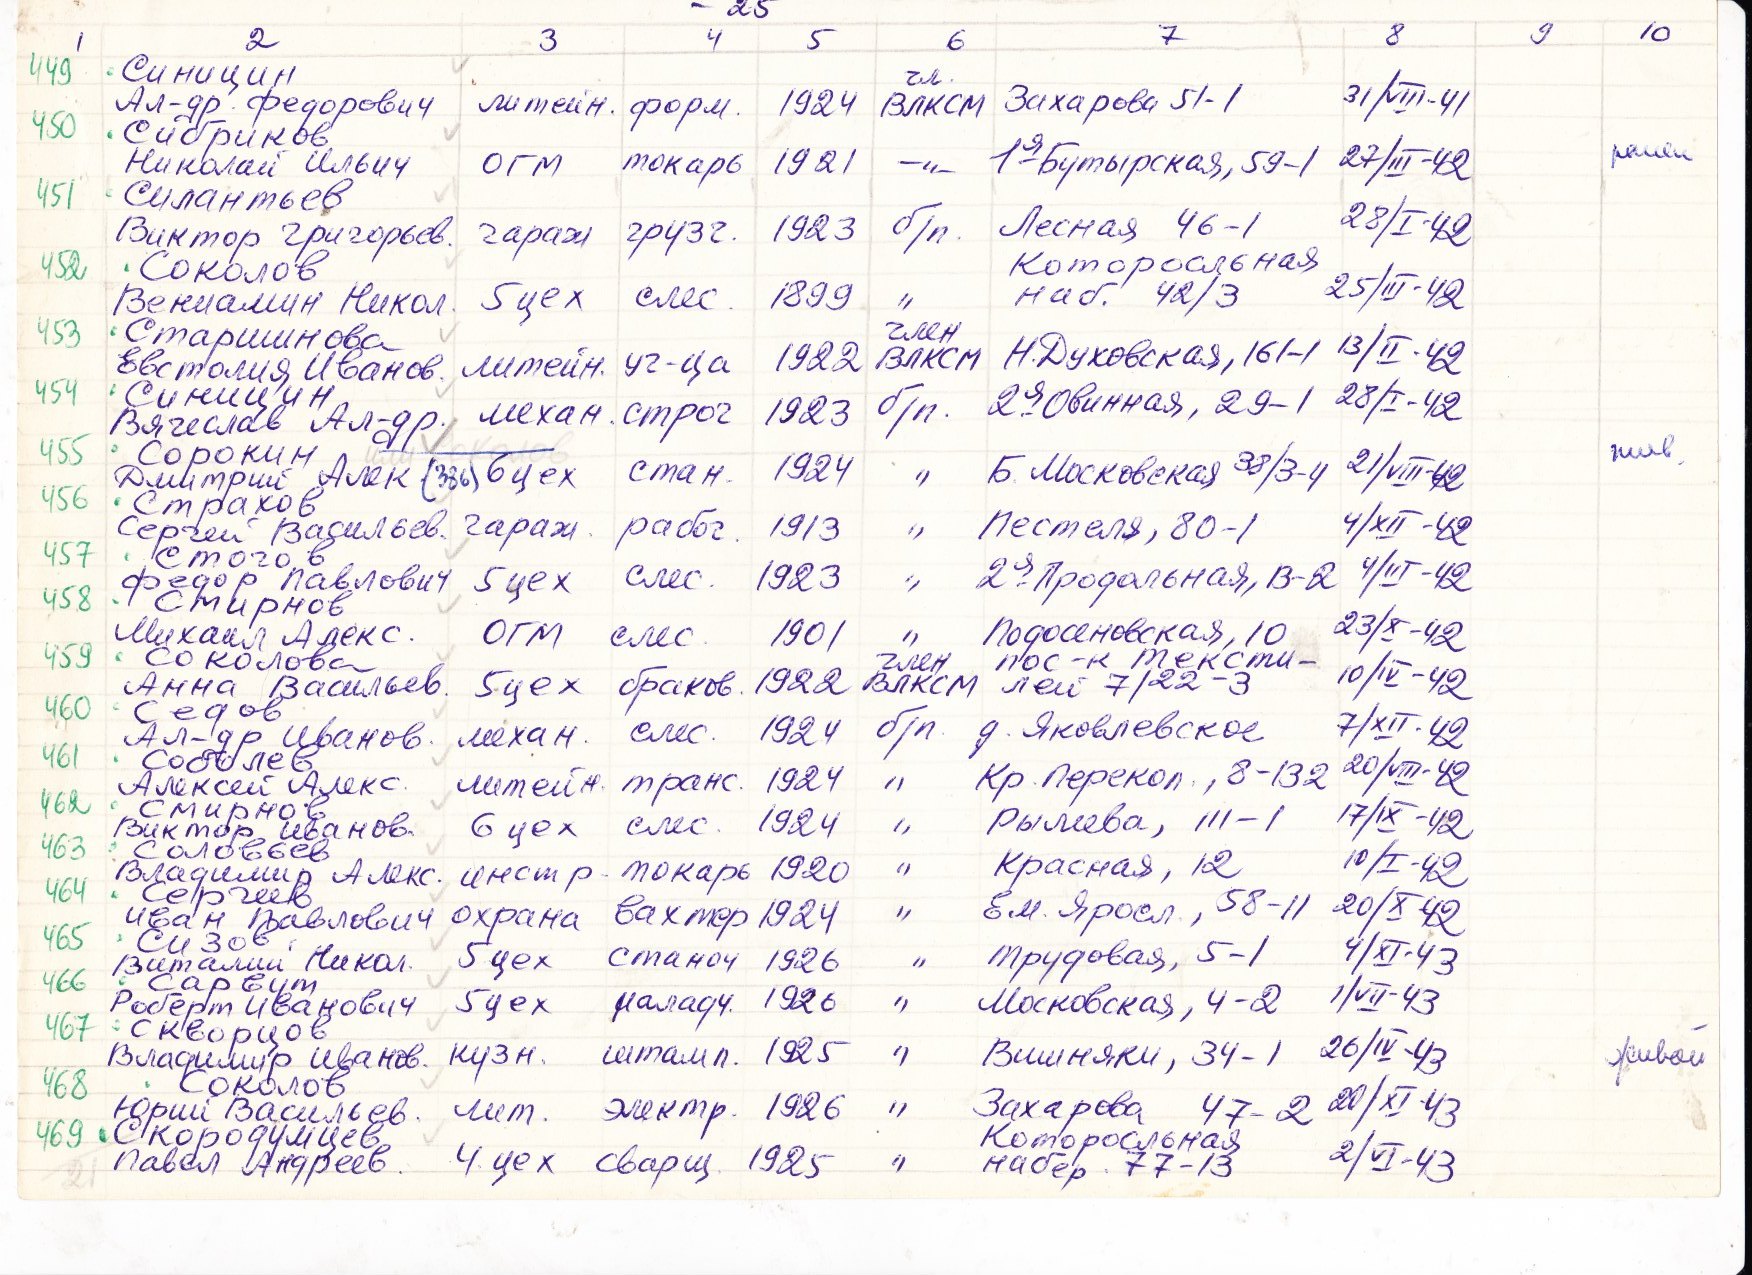 - 25
1 2 3 4 5 6 7 8 9 10
449 Синицин чл.
Ал-др. Федорович литейн. форм. 1924 ВЛКСМ Захарова 51-1 31/VIII-41
450 Сибриков
Николай Ильич ОГМ токарь 1921 -"- 1я Бутырская, 59-1 27/III-42
451 Силантьев
Виктор Григорьев. гараж грузч. 1923 б/п. Лесная 46-1 28/I-42
452 Соколов Которосльная
Вениамин Никол. 5 цех слес. 1899 " наб. 42/3 25/III-42
453 Старшинова член
Евстолия Иванов. литейн. уч-ца 1922 ВЛКСМ Н.Духовская, 161-1 13/II-42
454 Синицин
Вячеслав Ал-др. механ. строг 1923 б/п. 2я Овинная, 29-1 28/I-42
455 Сорокин
Дмитрий Алек (386) 6 цех стан. 1924 " Б. Московская 38/3-4 21/VIII-42 жив.
456 Страхов
Сергей Васильев. гараж. рабоч. 1913 " Пестеля, 80-1 4/XII-42
457 Стогов
Федор Павлович 5 цех слес. 1923 " 2я Продольная, В-2 4/III-42
458 Смирнов
Михаил Алекс. ОГМ слес. 1901 " Подосеновская, 10 23/X-42
459 Соколова член пос-к Тексти-
Анна Васильев. 5 цех браков. 1922 ВЛКСМ лей 7/22-3 10/IV-42
460 Седов
Ал-др Иванов. механ. слес. 1924 б/п. д. Яковлевское 7/XII-42
461 Соболев
Алексей Алекс. литейн. транс. 1924 " Кр. Перекоп., 8-132 20/VIII-42
462 Смирнов
Виктор Иванов. 6 цех слес. 1924 " Рылеева, 111-1 17/IX-42
463 Соловьев
Владимир Алекс. инстр. токарь 1920 " Красная, 12 10/I-42
464 Сергеев
Иван Павлович охрана вахтер 1924 " Ем. Яросл., 58-11 20/X-42
465 Сизов
Виталий Никол. 5 цех станоч 1926 " Трудовая, 5-1 4/XI-43
466 Сарвут
Роберт Иванович 5 цех наладч. 1926 " Московская, 4-2 1/VII-43
467 Скворцов
Владимир Иванов. кузн. штамп. 1925 " Вишняки, 34-1 26/IV-43 живой
468 Соколов
Юрий Васильев. лит. электр. 1926 " Захарова 47-2 20/XI-43
469 Скородумцев Которосльная
Павел Андреев. 4 цех сварщ. 1925 " набер. 77-13 2/VI-43
21